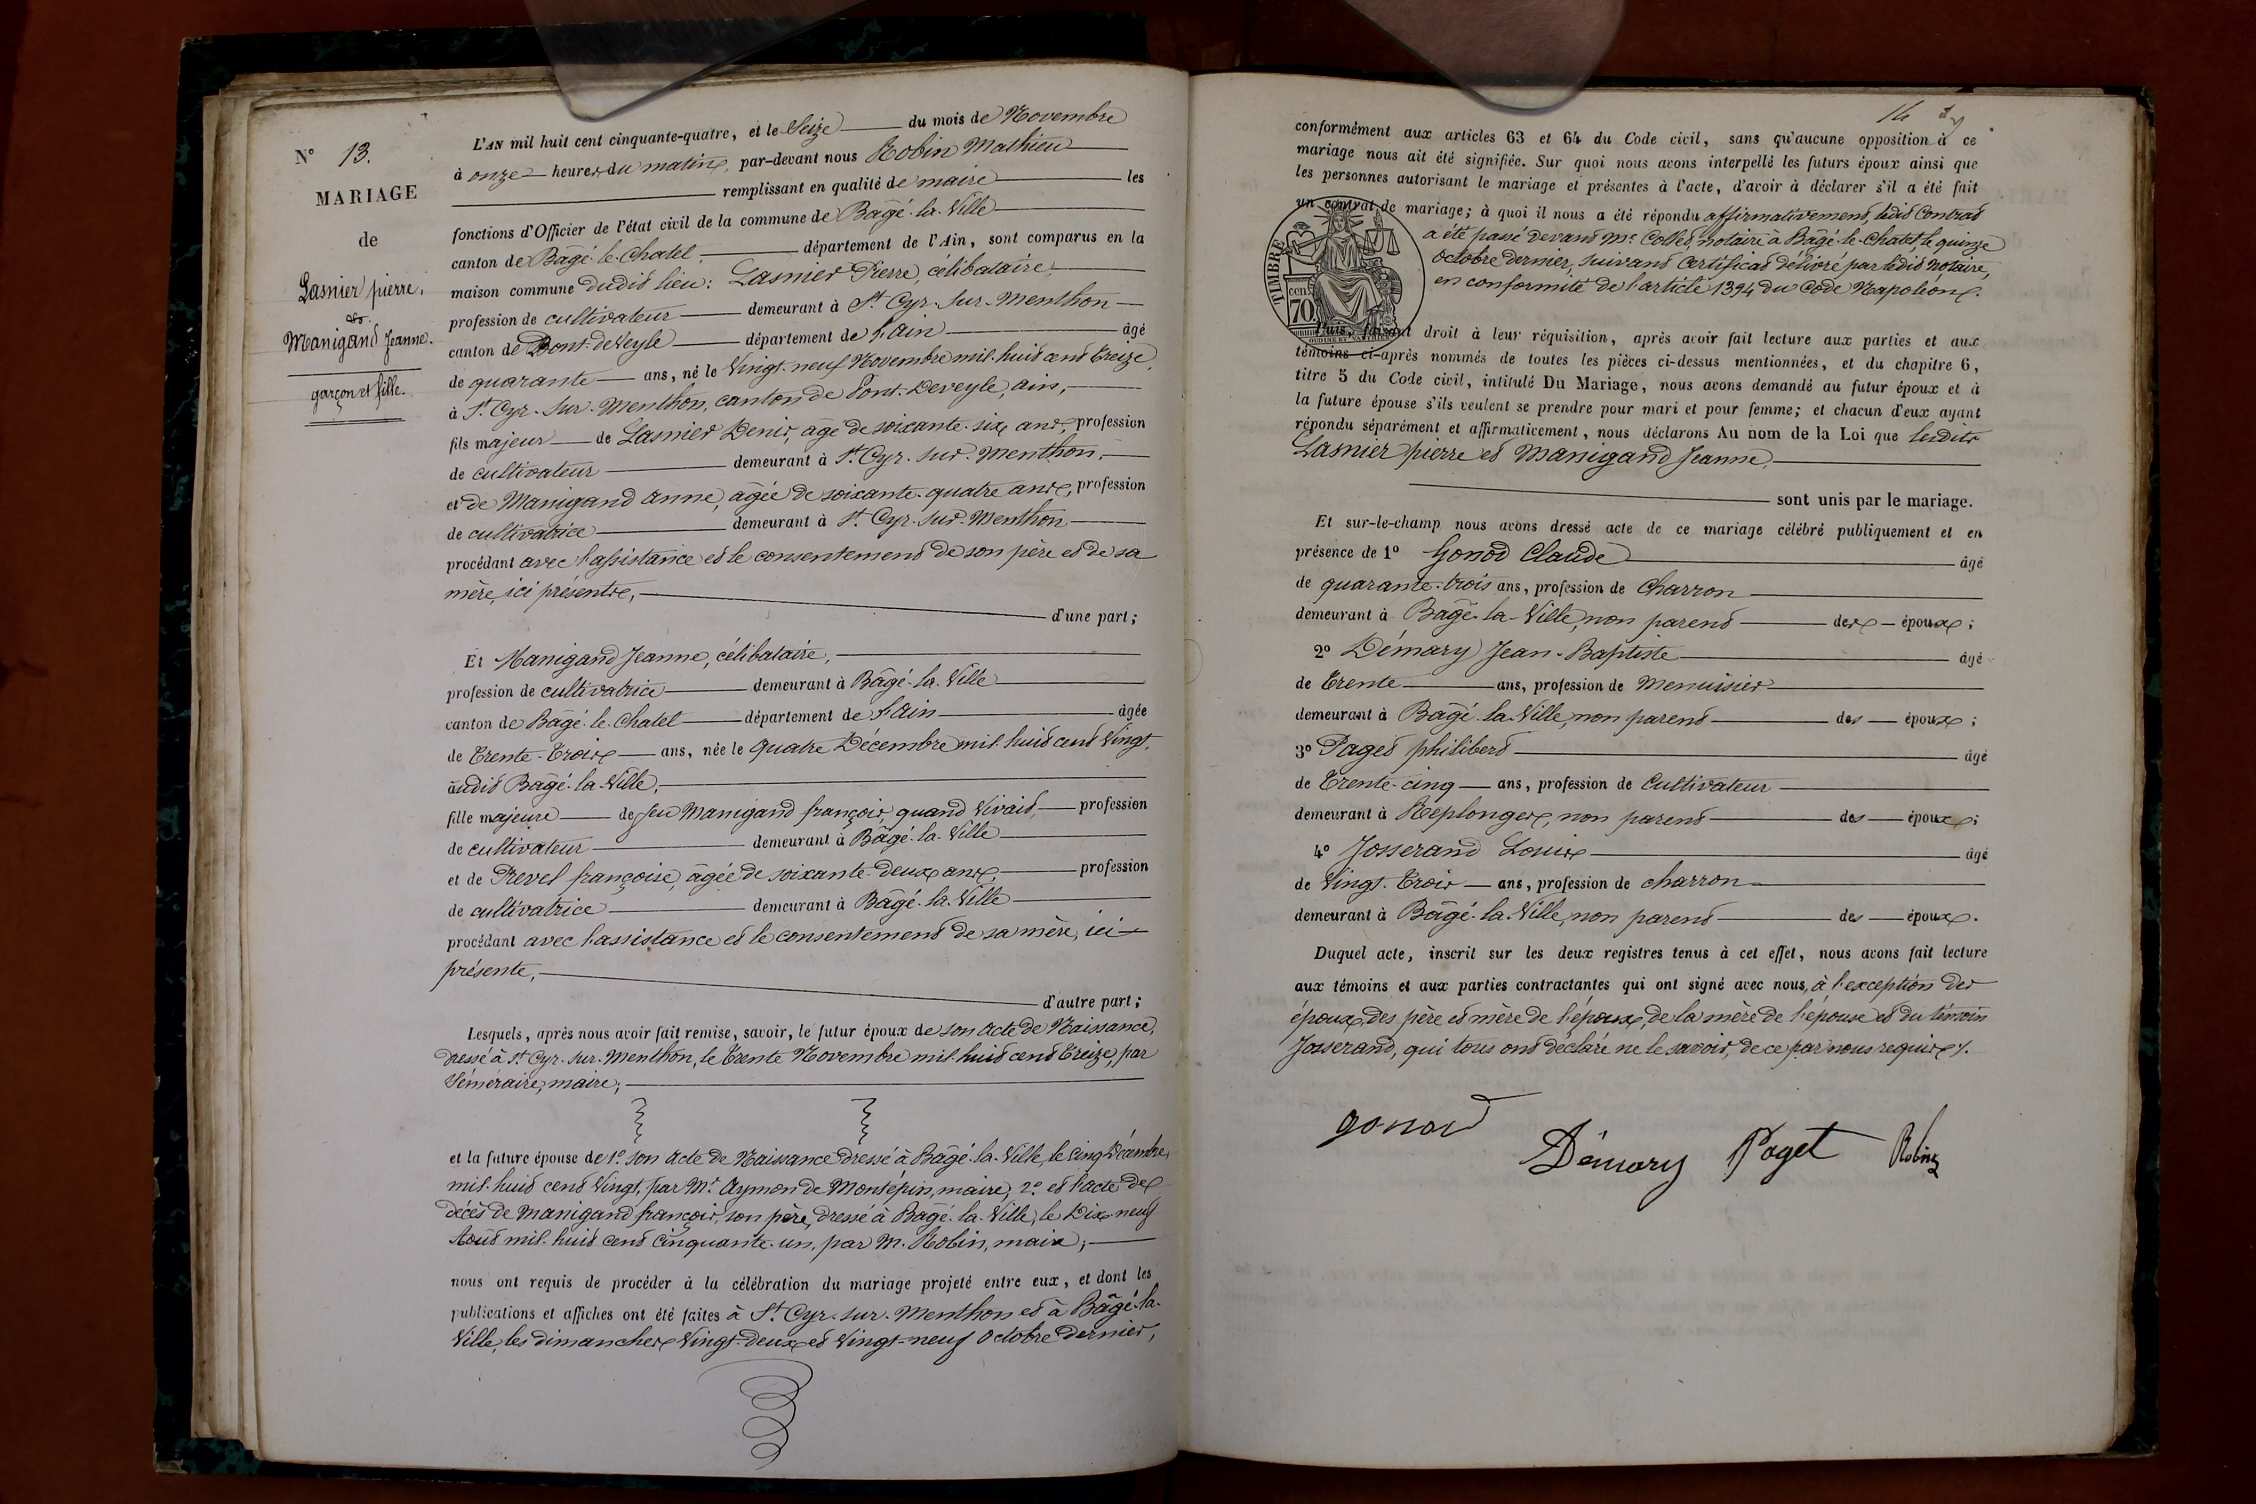 N° 13.
MARIAGE
de
Lasnier pierre.
&.
Manigand Jeanne.
garçon et fille.
L'AN mil huit cent cinquante-quatre, et le Seize du mois de Novembre
à onze heures du matin, par-devant nous Robin Mathieu
remplissant en qualité de maire les
fonctions d'Officier de l'état civil de la commune de Bâgé-la-Ville
canton de Bâgé-le-Chatel, département de l'Ain, sont comparus en la
maison commune dudit lieu: Lasnier Pierre, célibataire,
profession de cultivateur demeurant à St Cyr-sur-Menthon
canton de Pont-de-Veyle département de l'ain âgé
de quarante ans, né le Vingt-neuf Novembre mil-huit cent Treize,
à St Cyr-sur-Menthon, canton de Pont-Deveyle, ain,
fils majeur de Lasnier Denis, âgé de soixante-six ans, profession
de cultivateur demeurant à St Cyr-sur-Menthon,
et de Manigand anne, âgée de soixante-quatre ans, profession
de cultivatrice demeurant à St Cyr-sur-Menthon
procédant avec l'assistance et le consentement de son père et de sa
mère, ici présents, d'une part;
Et Manigand Jeanne, célibataire,
profession de cultivatrice demeurant à Bâgé-la-Ville
canton de Bâgé-le-Chatel département de l'ain âgée
de Trente-Trois ans, née le quatre Décembre mil-huit cent Vingt,
audit Bâgé-la-Ville,
fille majeure de feu Manigand françois, quand Vivait, profession
de cultivateur demeurant à Bâgé-la-Ville
et de Prevel françoise, âgée de soixante-deux ans, profession
de cultivatrice demeurant à Bâgé-la-Ville
procédant avec l'assistance et le consentement de sa mère, ici
présente, d'autre part;
Lesquels, après nous avoir fait remise, savoir, le futur époux de son acte de Naissance,
dressé à St Cyr-sur-Menthon, le Trente Novembre mil-huit cent Treize, par
Téméraire, maire;
et la future épouse de 1° son acte de Naissance dressé à Bâgé-la-Ville, le cinq Décembre
mil-huit cent Vingt, par Mr Aymon de Montépin, maire; 2° et l'acte de
décès de Manigand françois, son père, dressé à Bagé-la-Ville, le Dix-neuf
Août mil-huit cent cinquante-un, par M. Robin, maire;
nous ont requis de procéder à la célébration du mariage projeté entre eux, et dont les
publications et affiches ont été faites à St Cyr-sur-Menthon et à Bâgé-la-
Ville, les dimanches Vingt-deux et Vingt-neuf Octobre dernier,
14
conformément aux articles 63 et 64 du Code civil, sans qu'aucune opposition à ce
mariage nous ait été signifiée. Sur quoi nous avons interpellé les futurs époux ainsi que
les personnes autorisant le mariage et présentes à l'acte, d'avoir à déclarer s'il a été fait
un contrat de mariage; à quoi il nous a été répondu affirmativement, ledit Contrat
a été passé devant Me Collet, notaire à Bâgé-le-Chatel, le quinze
octobre dernier, suivant Certificat délivré par ledit notaire,
en conformité de l'article 1394 du Code Napoléon.
TIMBRE
cen.
70.
OUDINÉ ET VAUTHIER
Puis, faisant droit à leur réquisition, après avoir fait lecture aux parties et aux
témoins ci-après nommés de toutes les pièces ci-dessus mentionnées, et du chapitre 6,
titre 5 du Code civil, intitulé Du Mariage, nous avons demandé au futur époux et à
la future épouse s'ils veulent se prendre pour mari et pour femme; et chacun d'eux ayant
répondu séparément et affirmativement, nous déclarons Au nom de la Loi que lesdits
Lasnier pierre et Manigand Jeanne,
sont unis par le mariage.
Et sur-le-champ nous avons dressé acte de ce mariage célébré publiquement et en
présence de 1° Gonod Claude âgé
de quarante-trois ans, profession de Charron
demeurant à Bâgé-la-Ville, non parent des époux;
2° Démary Jean-Baptiste âgé
de Trente ans, profession de Menuisier
demeurant à Bâgé-la-Ville, non parent des époux;
3° Paget philibert âgé
de Trente-cinq ans, profession de Cultivateur
demeurant à Replonges, non parent des époux;
4° Josserand Louis âgé
de Vingt-Trois ans, profession de charron
demeurant à Bâgé-la-Ville, non parent des époux.
Duquel acte, inscrit sur les deux registres tenus à cet effet, nous avons fait lecture
aux témoins et aux parties contractantes qui ont signé avec nous, à l'exception des
époux, des père et mère de l'époux, de la mère de l'épouse et du témoin
Josserand, qui tous ont déclaré ne le savoir, de ce par nous requis.
gonod
Démary Paget Robin